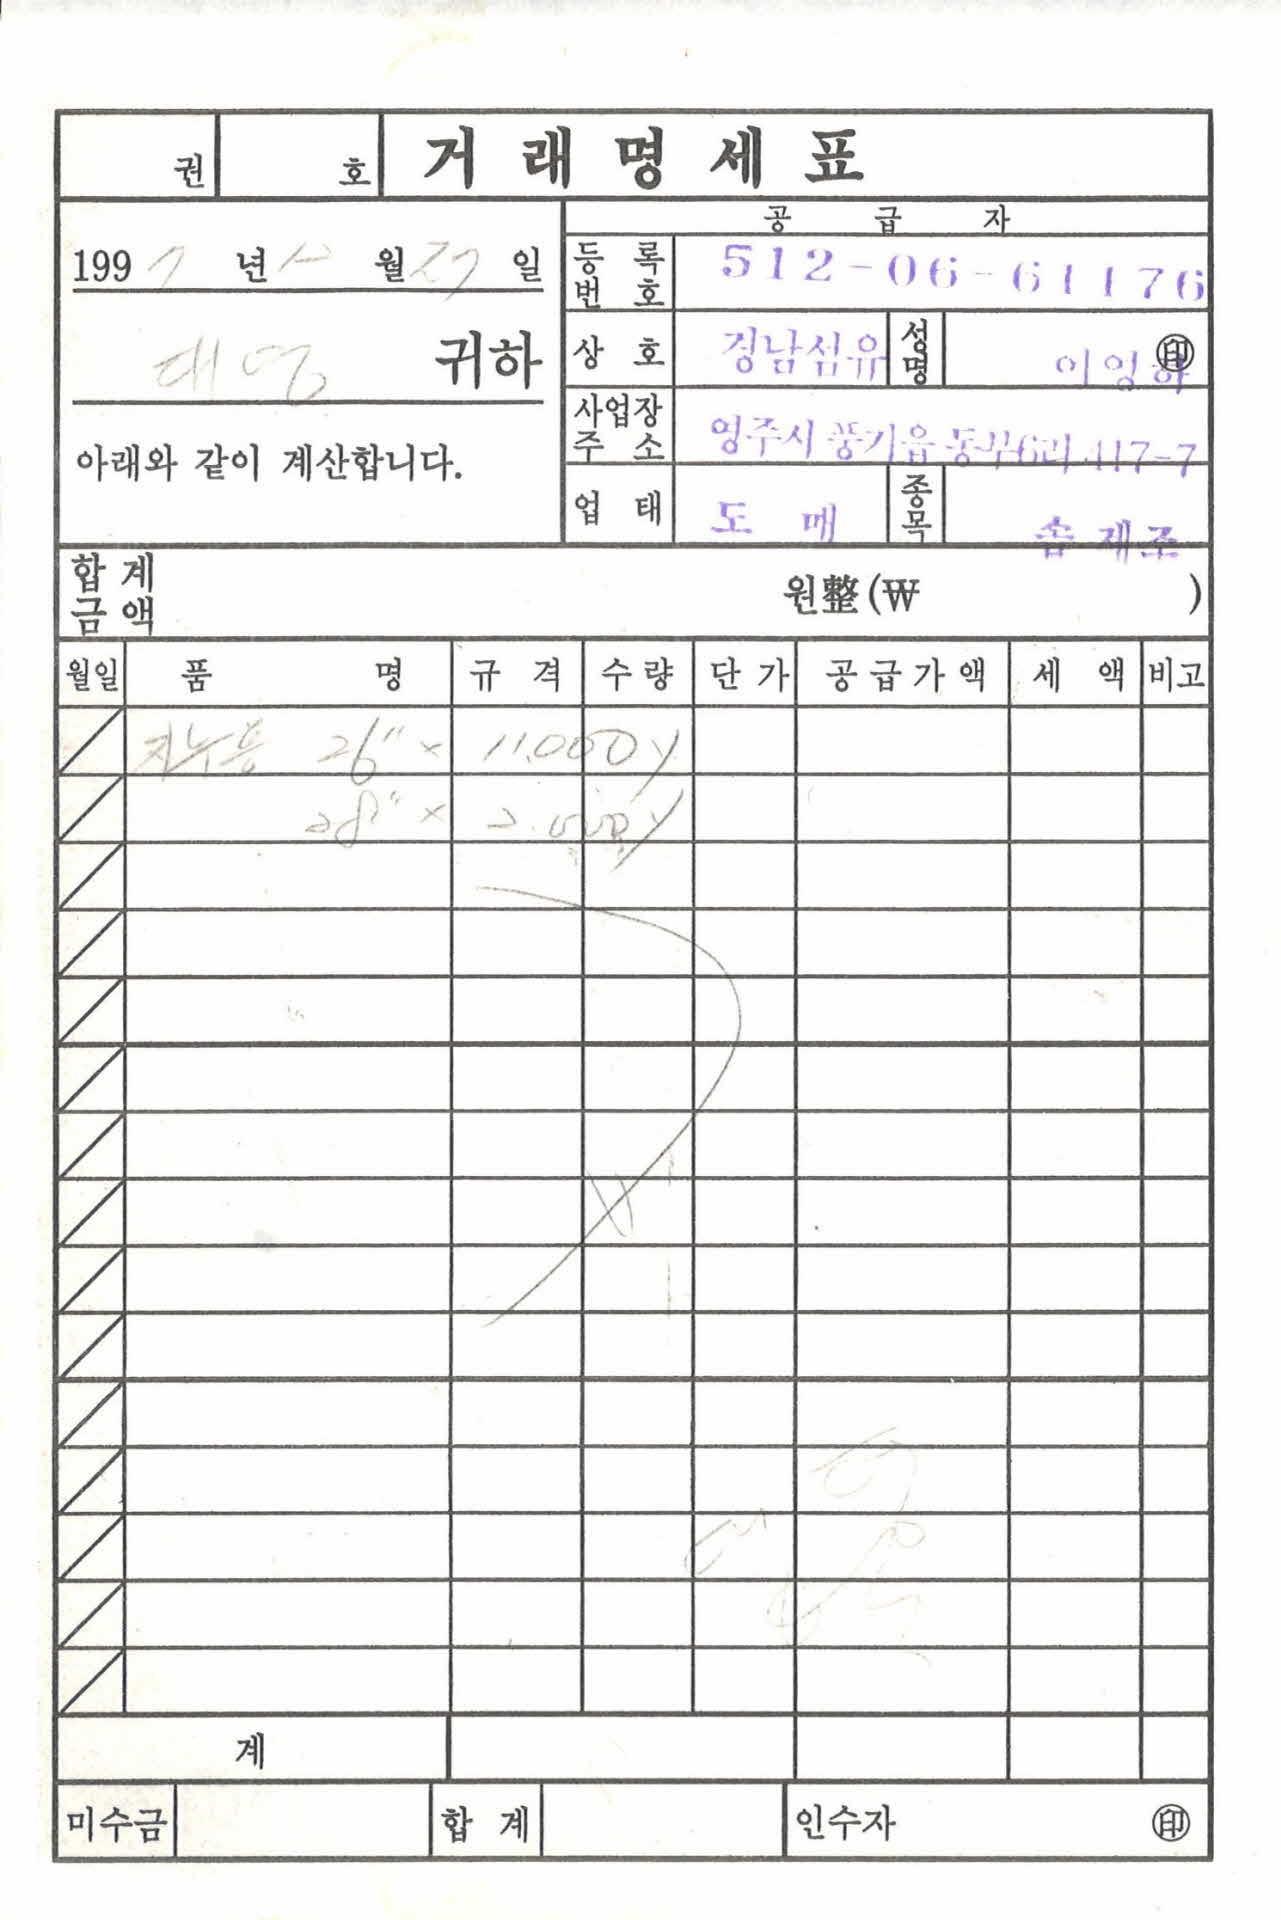 권 호 거래명세표
공급자
1997 년 12 월 27 일
등록번호 512-06-61176
대영 귀하
상호 경남섬유 성명 이영하 ㊞
아래와 같이 계산합니다.
사업장주소 영주시 풍기읍 동부6리 417-7
업태 도매 종목 솜제조
합계금액 원整(₩ )
월일 품명 규격 수량 단가 공급가액 세액 비고
26" × 11.000y
28" × 2.000y
계
미수금 합계 인수자 ㊞